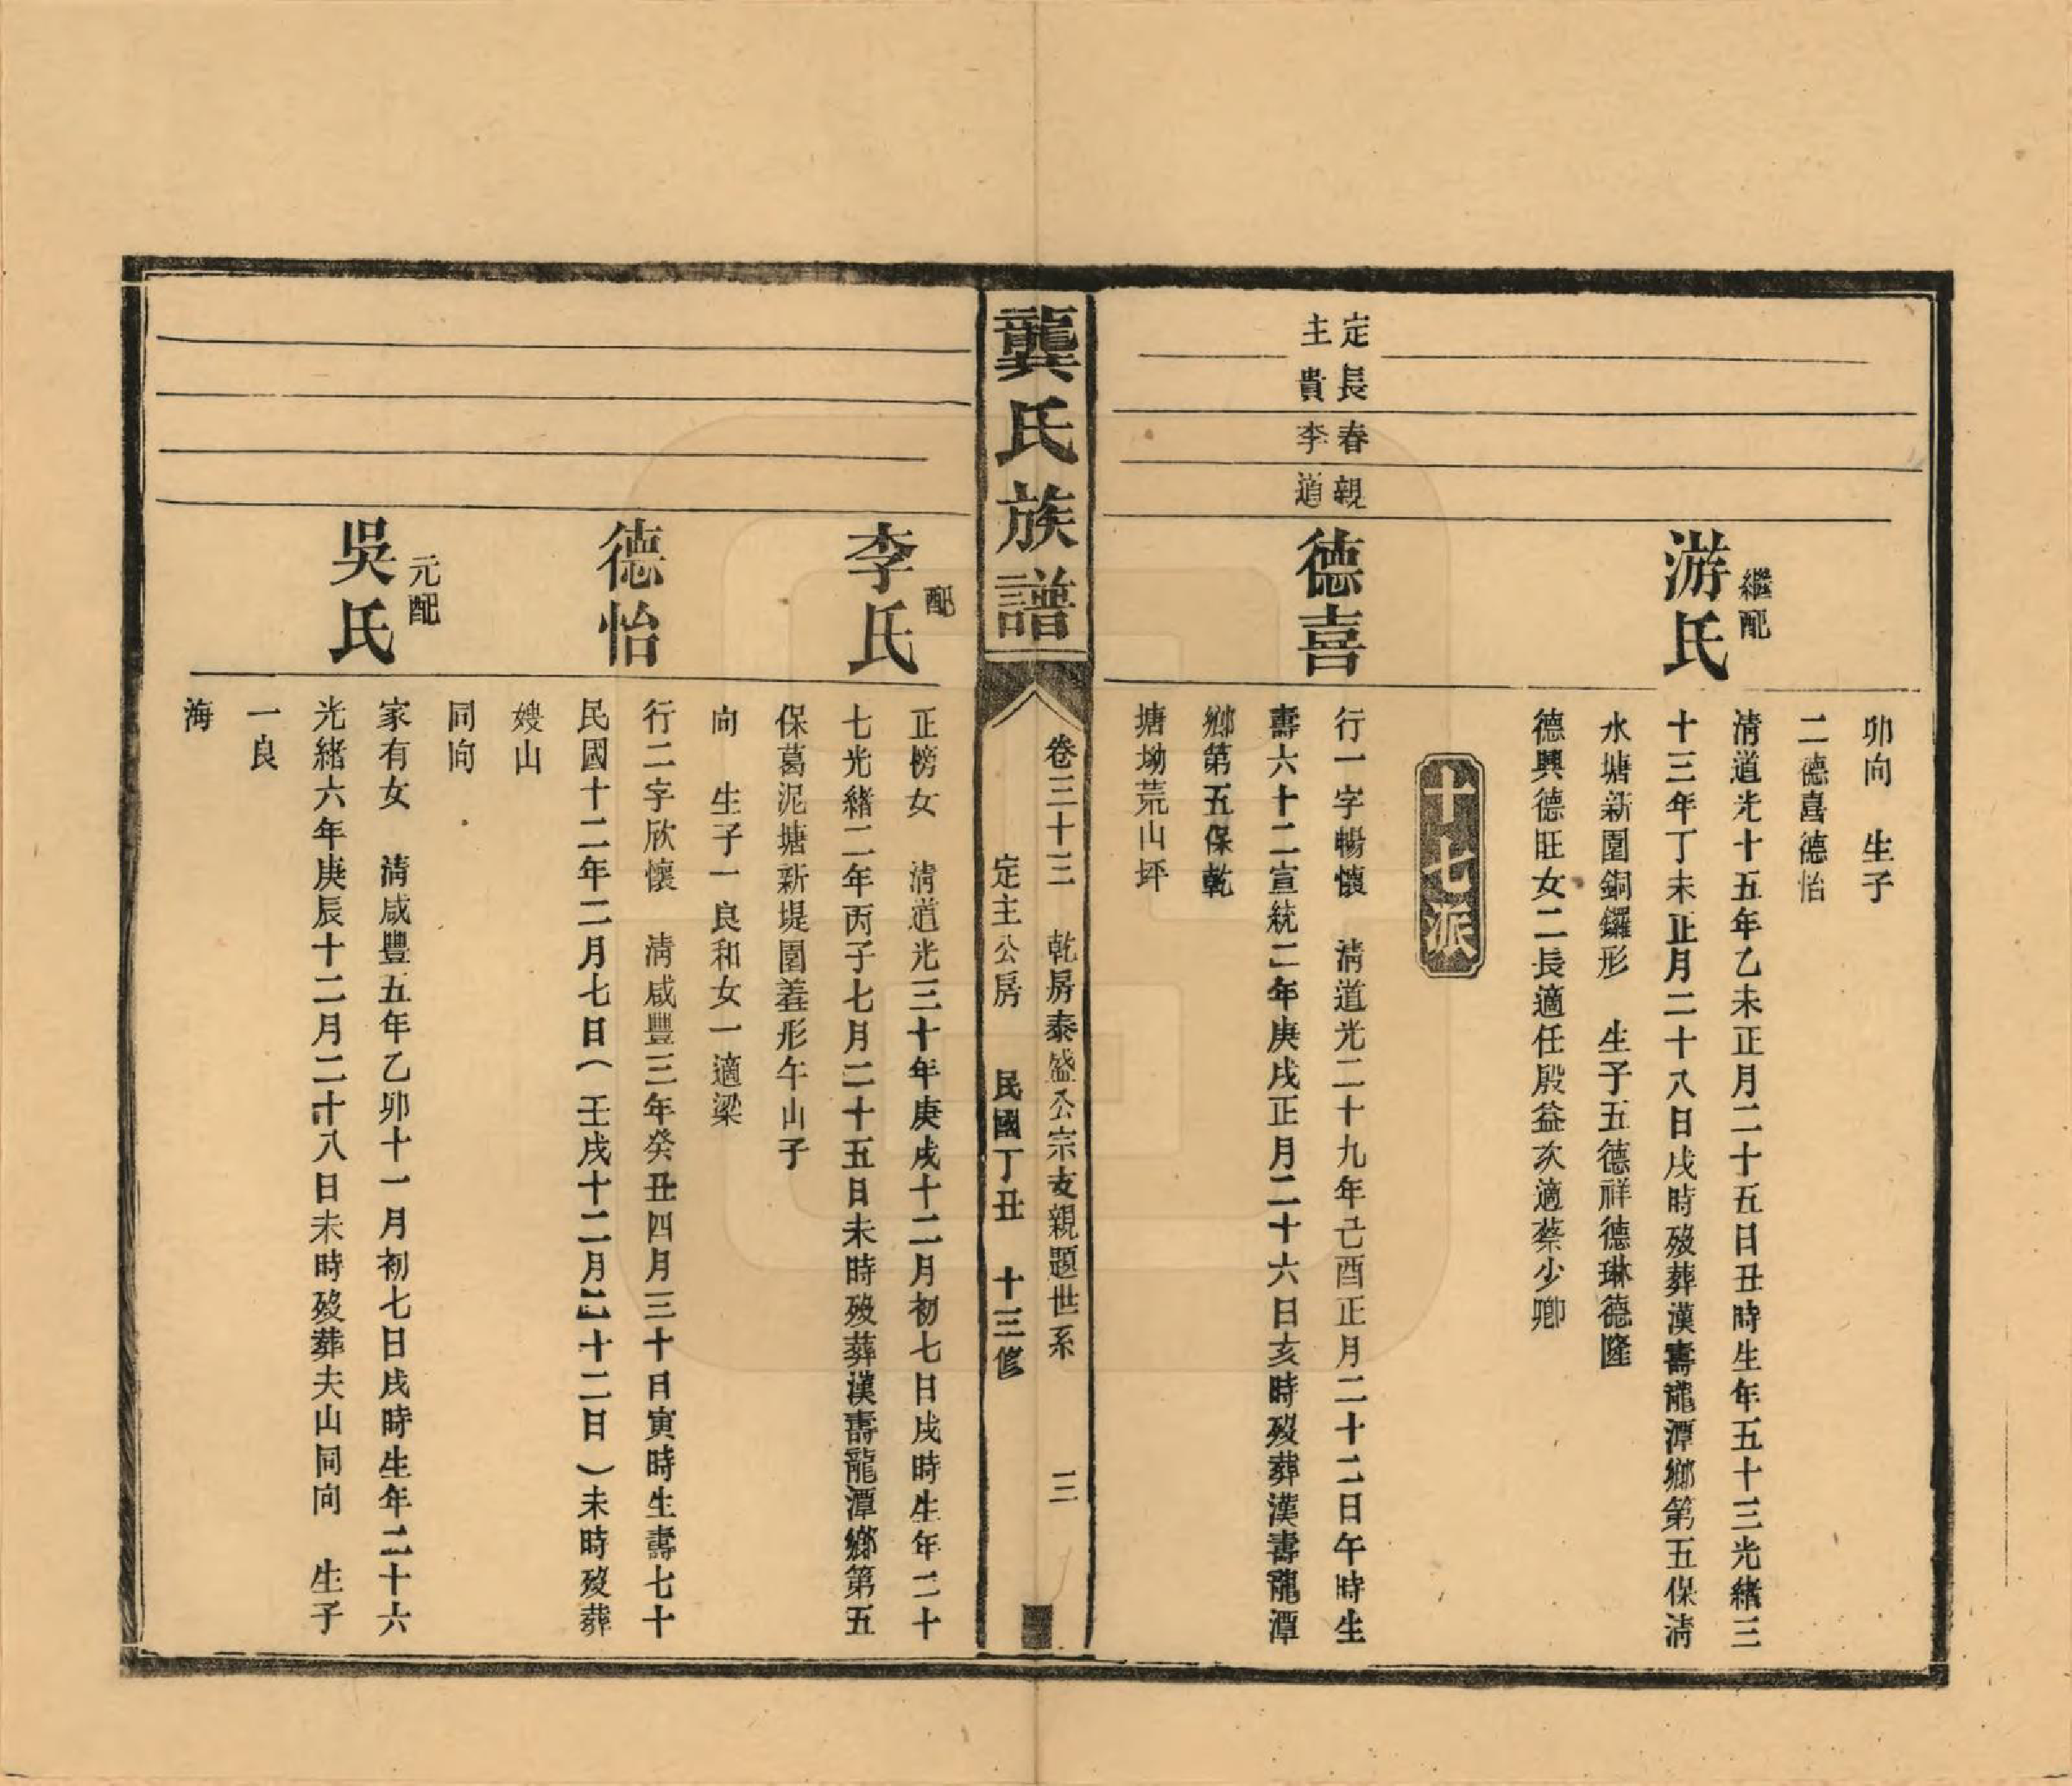 卯向　生子
二德喜德怡
繼配
游氏
淸道光十五年乙未正月二十五日丑時生年五十三光緒三
十三年丁未正月二十八日戌時歿葬漢壽龍潭鄉第五保淸
水塘新圍銅鑼形　生子五德祥德琳德隆
德興德旺女二長適任殿益次適蔡少卿
十七派
定長春親
主貴李道
德喜
行一字暢懷　淸道光二十九年己酉正月二十二日午時生
壽六十二宣統二年庚戌正月二十六日亥時歿葬漢壽龍潭
鄉第五保乾
塘坳荒山坪
龔氏族譜
卷三十三　乾房泰盛公宗支親題世系　三
定主公房　民國丁丑　十三修
配
李氏
正榜女　淸道光三十年庚戌十二月初七日戌時生年二十
七光緒二年丙子七月二十五日未時歿葬漢壽龍潭鄉第五
保葛泥塘新堤圍羞形午山子
向　生子一良和女一適梁
德怡
行二字欣懷　淸咸豐三年癸丑四月三十日寅時生壽七十
民國十二年二月七日（壬戌十二月二十二日）未時歿葬
嫂山
同向
元配
吳氏
家有女　淸咸豐五年乙卯十一月初七日戌時生年二十六
光緒六年庚辰十二月二十八日未時歿葬夫山同向　生子
一良
海